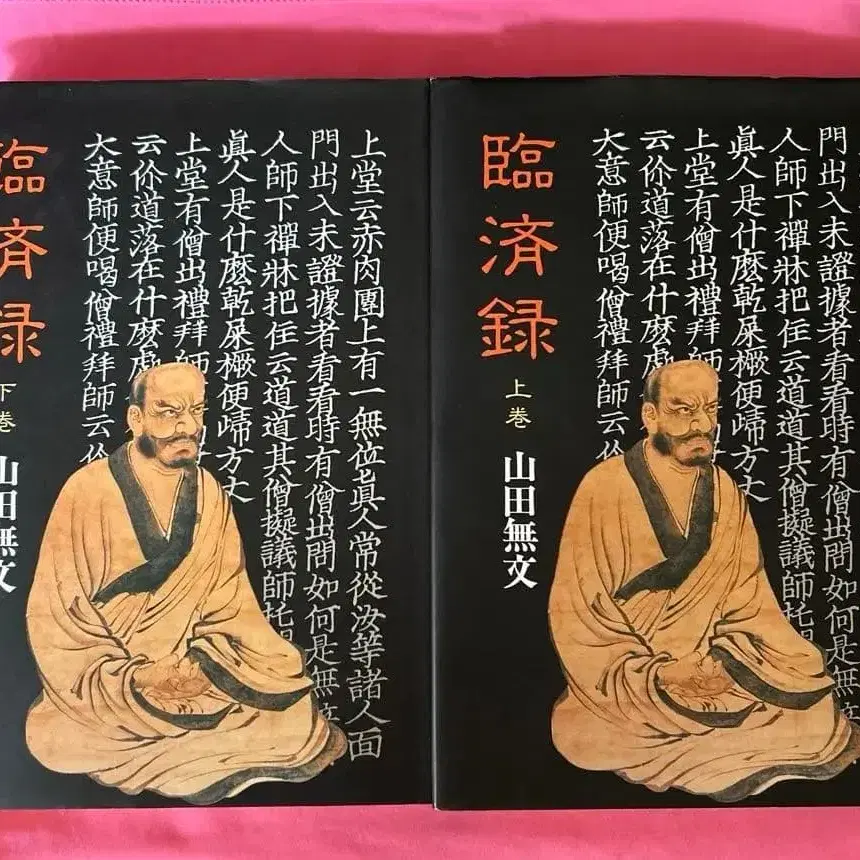 門出入未證據者看看時有僧出問如何是無
人師下禪牀把住云道道其僧擬議師托
眞人是什麼乾屎橛便歸方丈
上堂有僧出禮拜師
云你道落在什麼處
大意師便喝僧禮拜師云你
臨済録
上巻
山田無文
上堂云赤肉團上有一無位眞人常從汝等諸人面
門出入未證據者看看時有僧出問如何是無
人師下禪牀把住云道道其僧擬議師托
眞人是什麼乾屎橛便歸方丈
上堂有僧出禮拜師
云你道落在什麼處
大意師便喝僧禮拜師云你
臨済録
下巻
山田無文